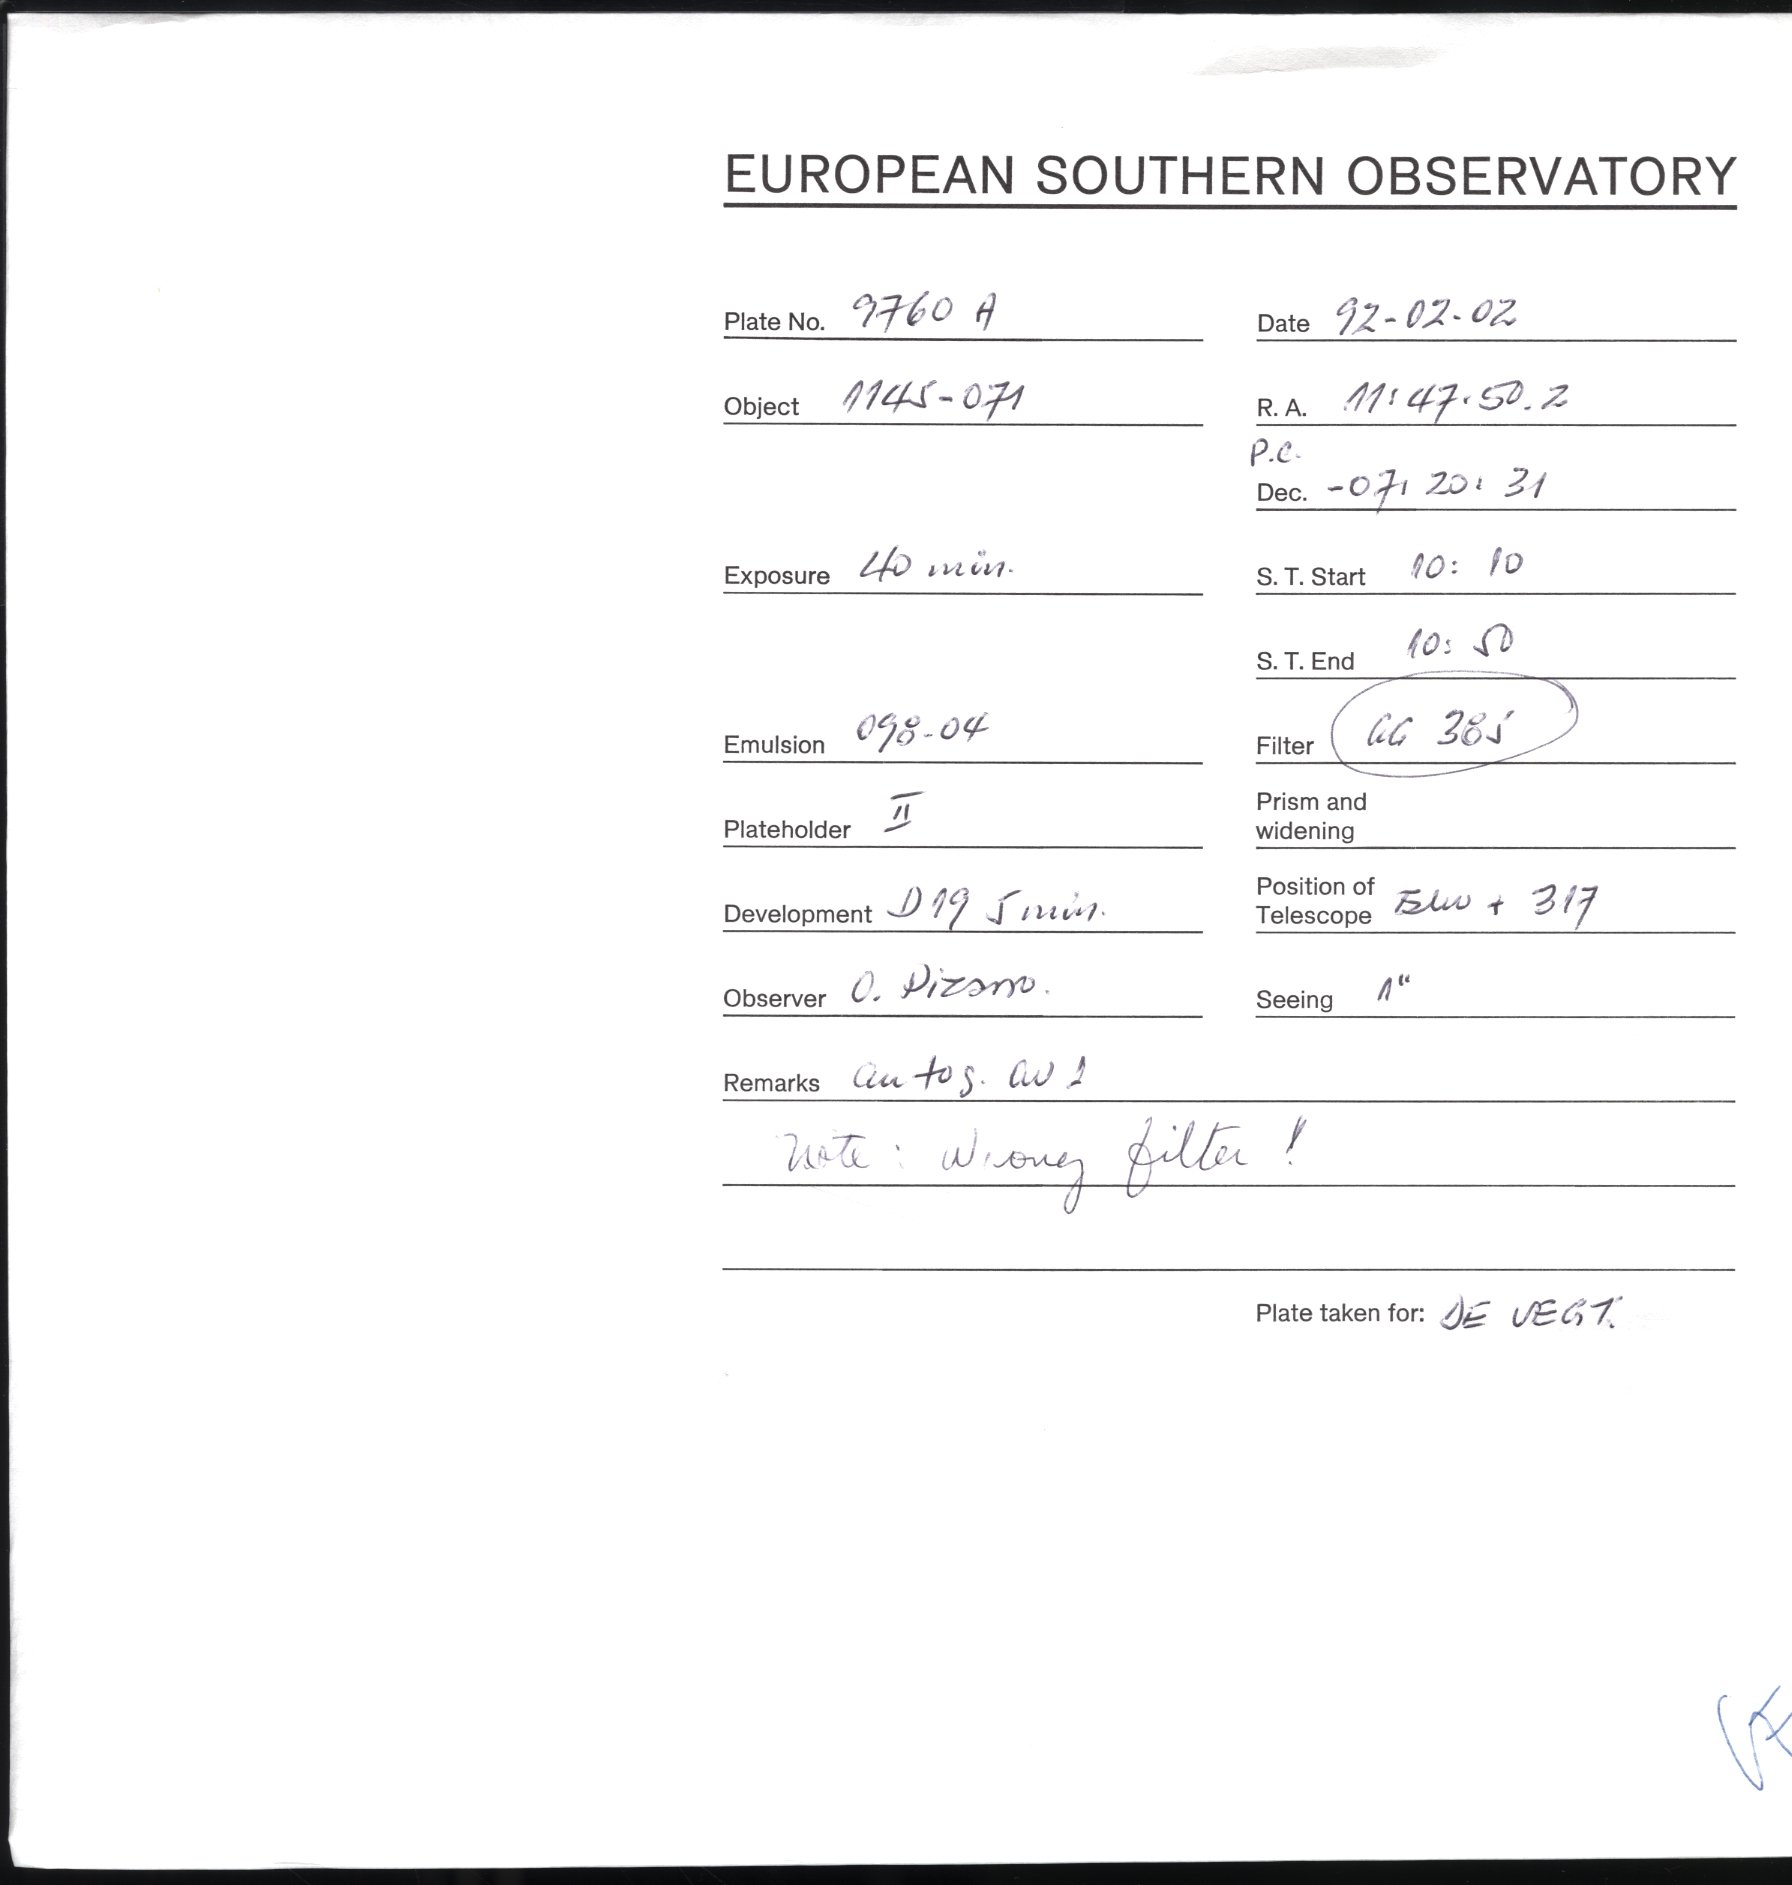 EUROPEAN SOUTHERN OBSERVATORY
Plate No. 9760 A
Date 92-02-02
Object 1145-071
R. A. 11:47:50.2
P.C.
Dec. -07: 20: 31
Exposure 40 min.
S. T. Start 10: 10
S. T. End 10: 50
Emulsion 098-04
Filter GG 385
Plateholder II
Prism and
widening
Development D19 5 min.
Position of
Telescope + 317
Observer O. Pizarro.
Seeing 1"
Remarks autog.
Note: Wrong filter!
Plate taken for: DE VEGT.